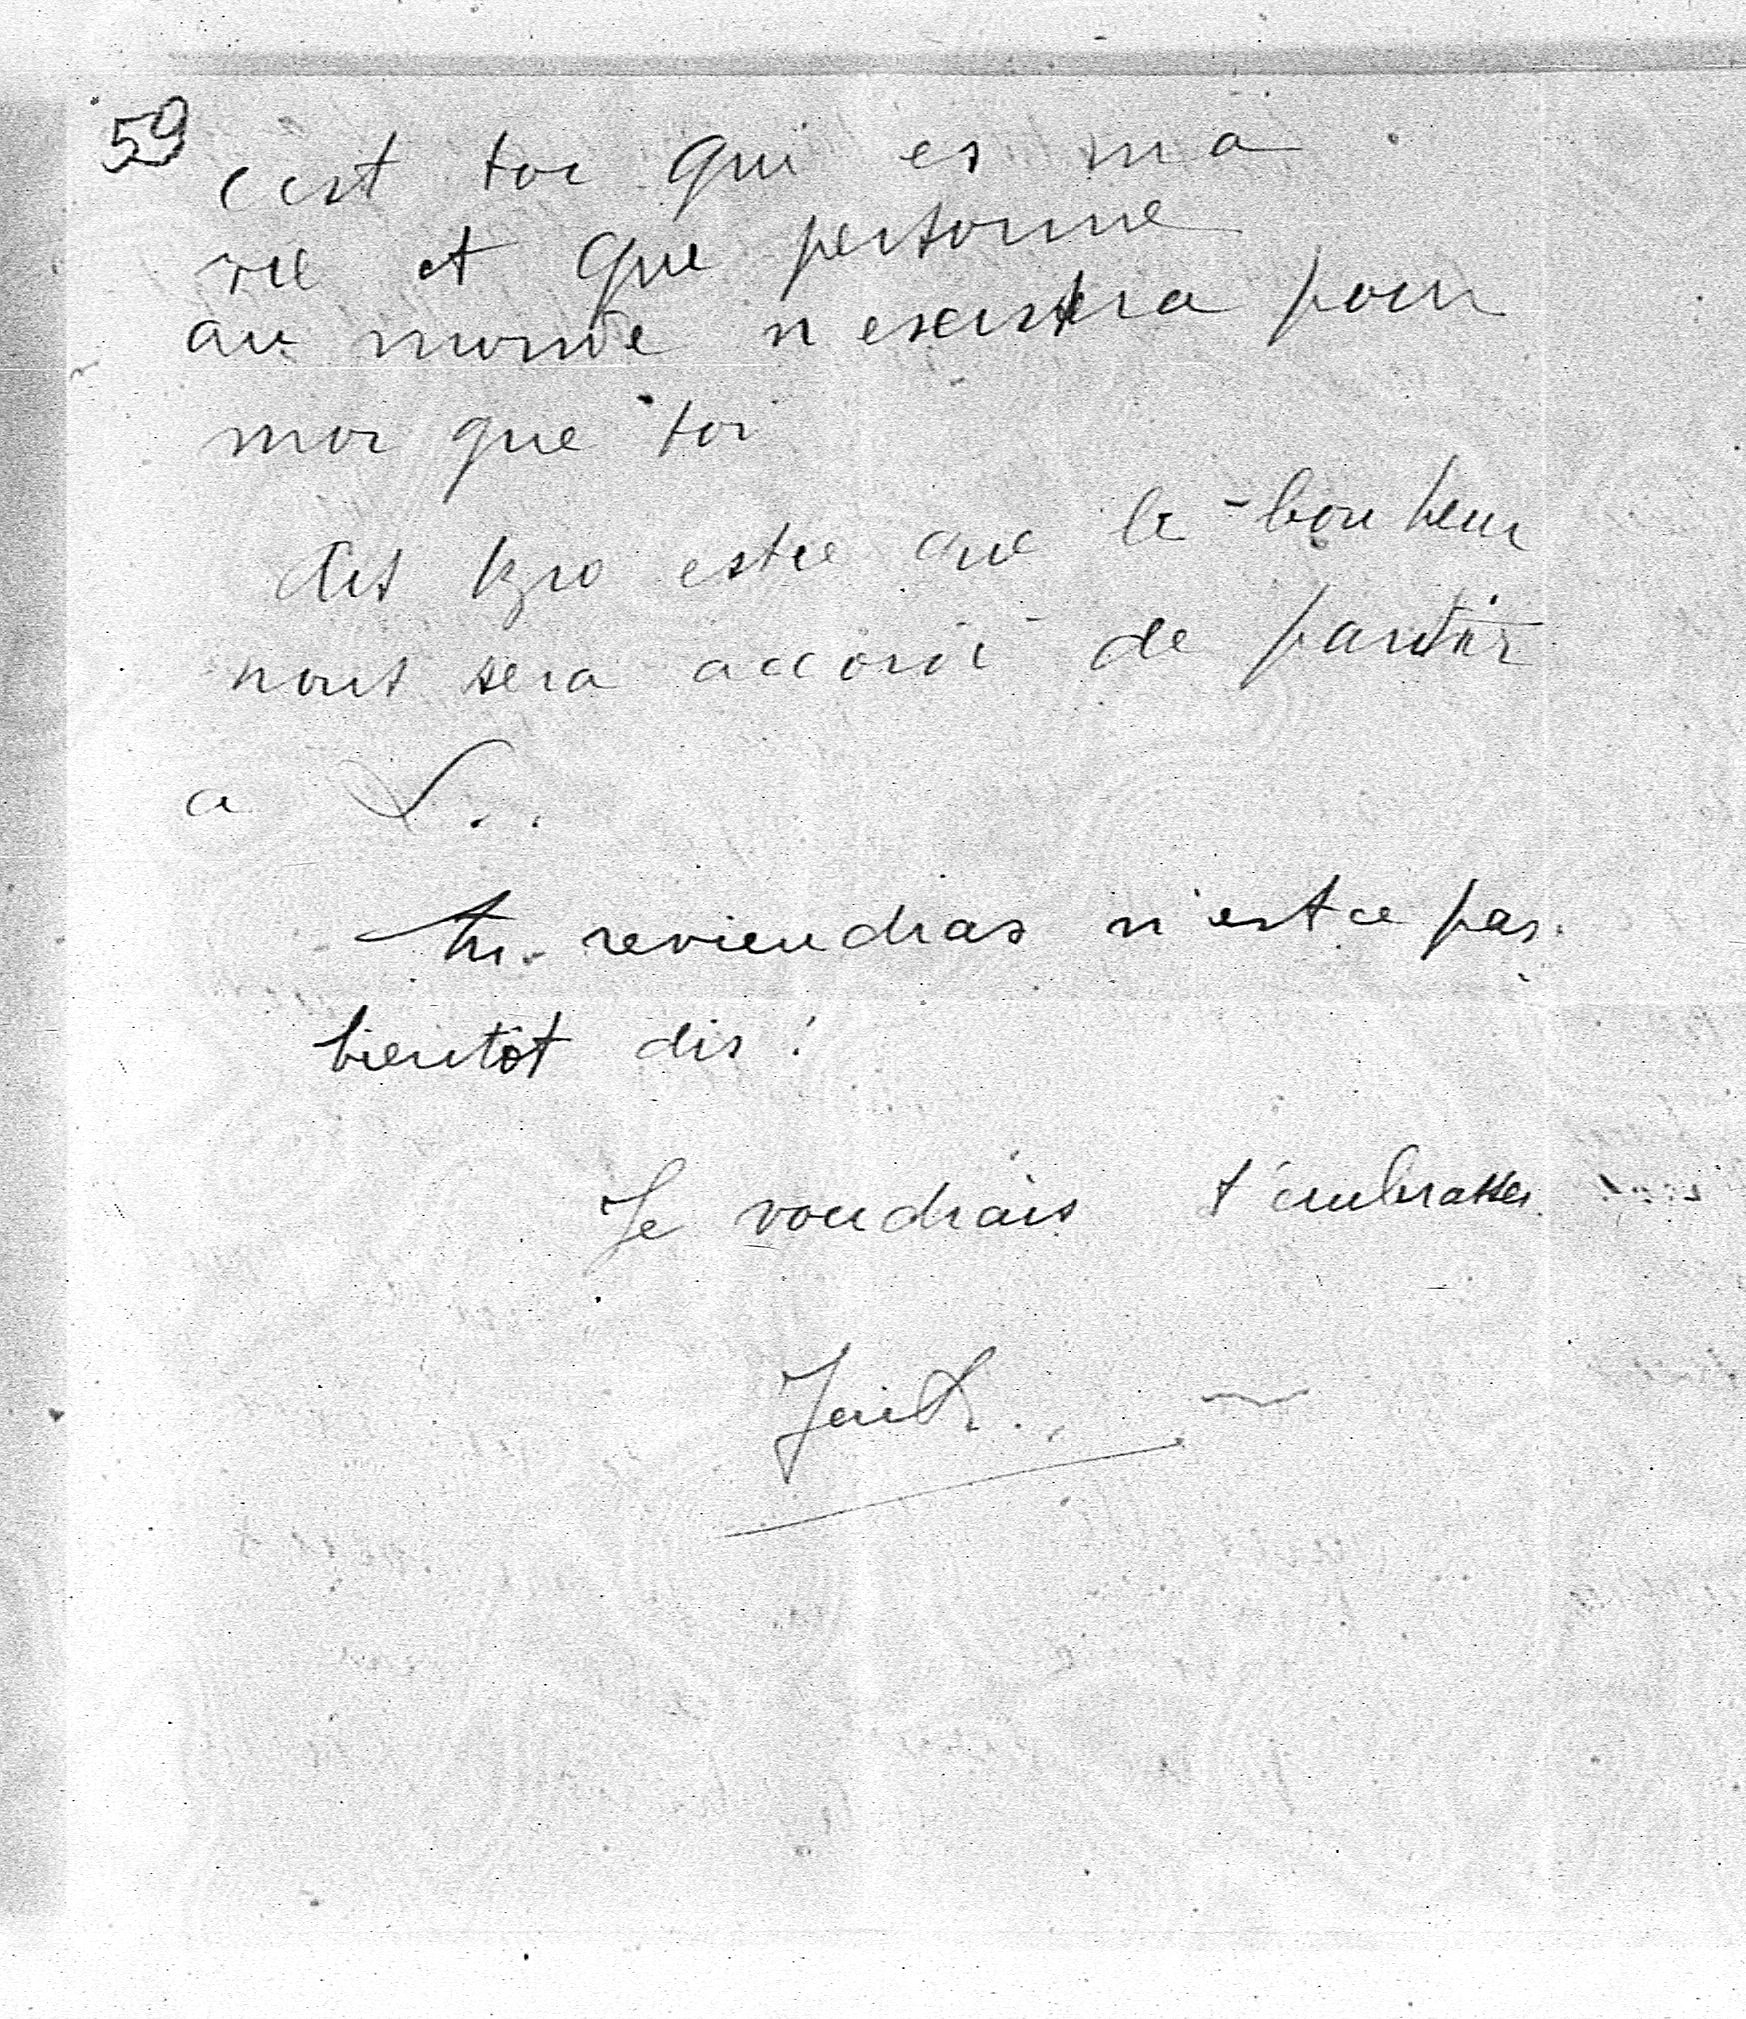 59
c'est toi qui es ma
vie et que personne
au monde n'existera pour
moi que toi
dis Izio est ce que le bonheur
nous sera accordé de partir
a L..
tu reviendras n'est ce pas.
bientôt dis!
Je voudrais t'embrasser.